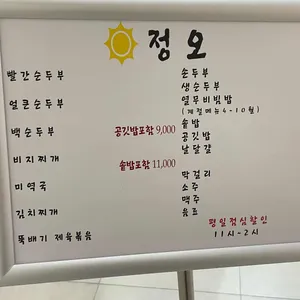 정오
빨간순두부
얼큰순두부
백순두부
비지찌개
미역국
김치찌개
뚝배기 제육볶음
공깃밥포함 9,000
솥밥포함 11,000
손두부
생순두부
열무비빔밥
(계절메뉴 4-10월)
솥밥
공깃밥
날달걀
막걸리
소주
맥주
음료
평일점심할인
11시-2시